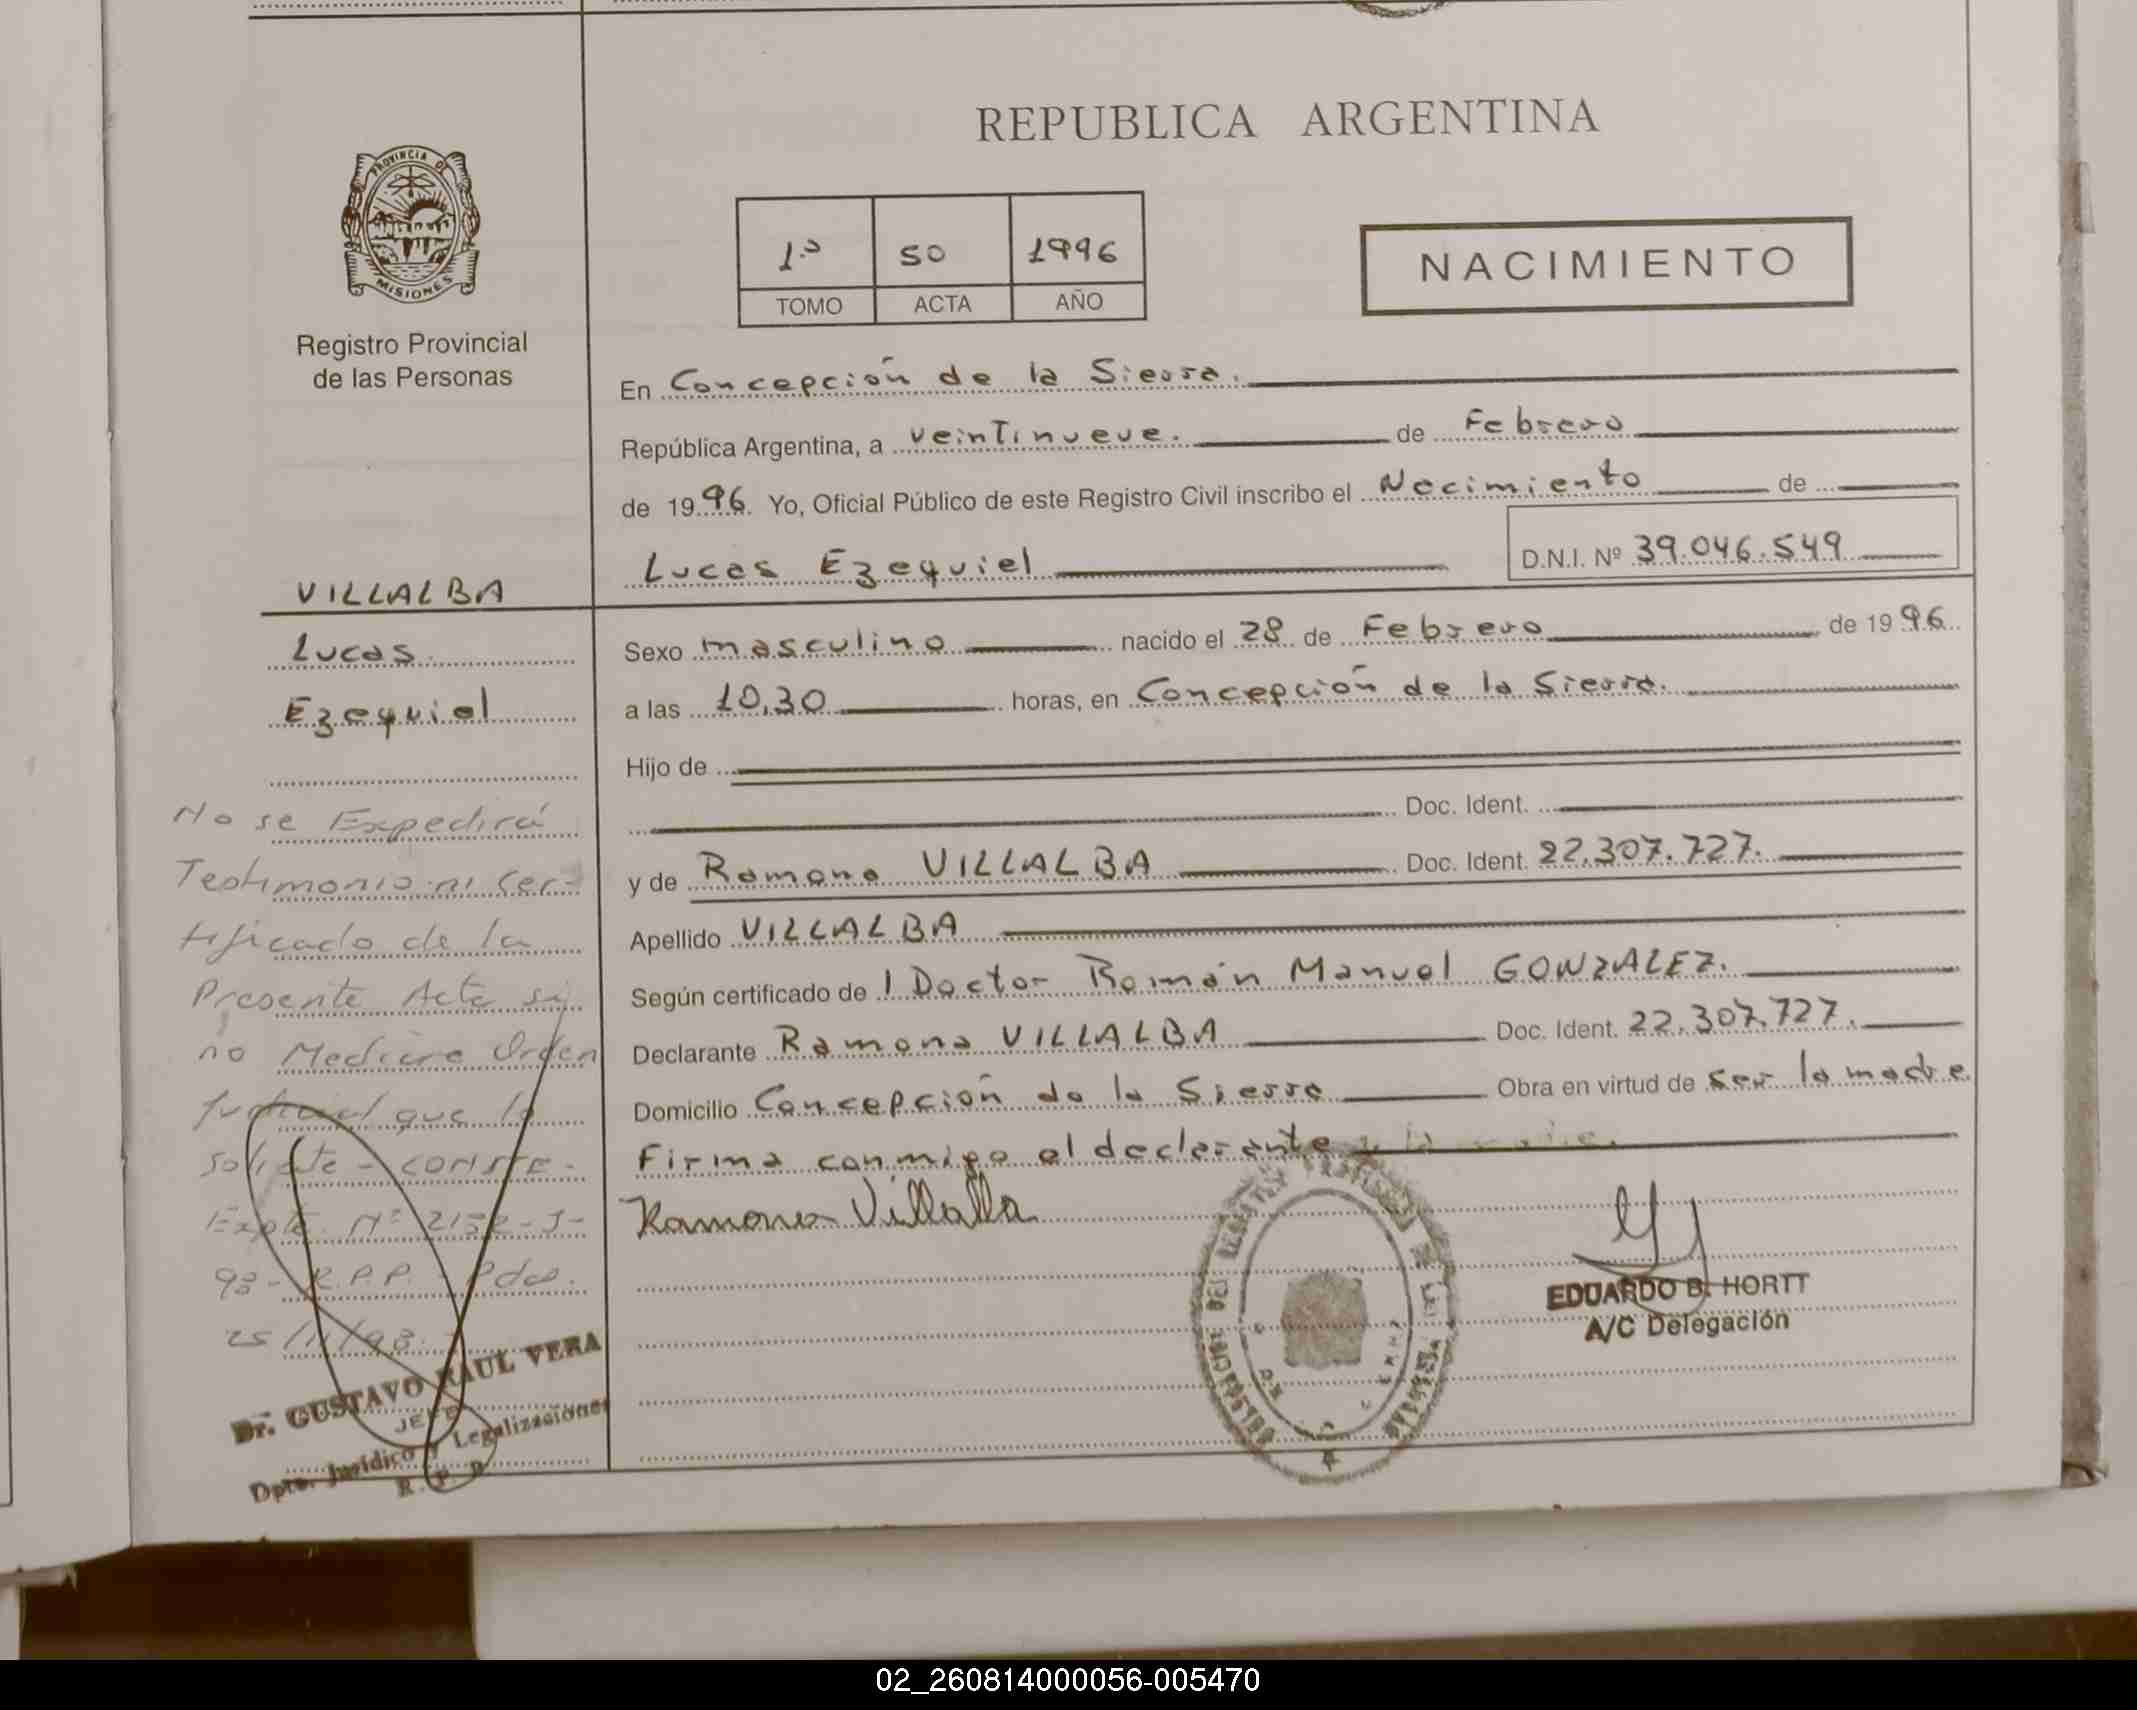 REPUBLICA ARGENTINA
PROVINCIA DE
MISIONES
Registro Provincial
de las Personas
1.º 50 1996
TOMO ACTA AÑO
NACIMIENTO
En Concepción de la Sierra.
República Argentina, a veintinueve. de Febrero
de 1996. Yo, Oficial Público de este Registro Civil inscribo el Nacimiento de
Lucas Ezequiel D.N.I. Nº 39.046.549
VILLALBA
Lucas
Ezequiel
Sexo masculino nacido el 28 de Febrero de 1996
a las 10,30 horas, en Concepción de la Sierra.
Hijo de
Doc. Ident.
y de Ramona VILLALBA Doc. Ident. 22.307.727.
Apellido VILLALBA
Según certificado de l Doctor Román Manuel GONZALEZ.
Declarante Ramona VILLALBA Doc. Ident. 22.307.727.
Domicilio Concepción de la Sierra Obra en virtud de ser la madre
Firma conmigo el declarante
Ramona Villalba
EDUARDO B. HORTT
A/C Delegación
No se Expedirá
Testimonio ni Cer-
tificado de la
Presente Acta si
no Mediare Orden
Judicial que lo
solicite - CONSTE -
Expte. Nº 2152-J-
93 - R.P.P. - Pdas.
25/11/93.
Dr. GUSTAVO RAUL VERA
JEFE
Dpto. Jurídico y Legalizaciones
R. P. P.
02_260814000056-005470